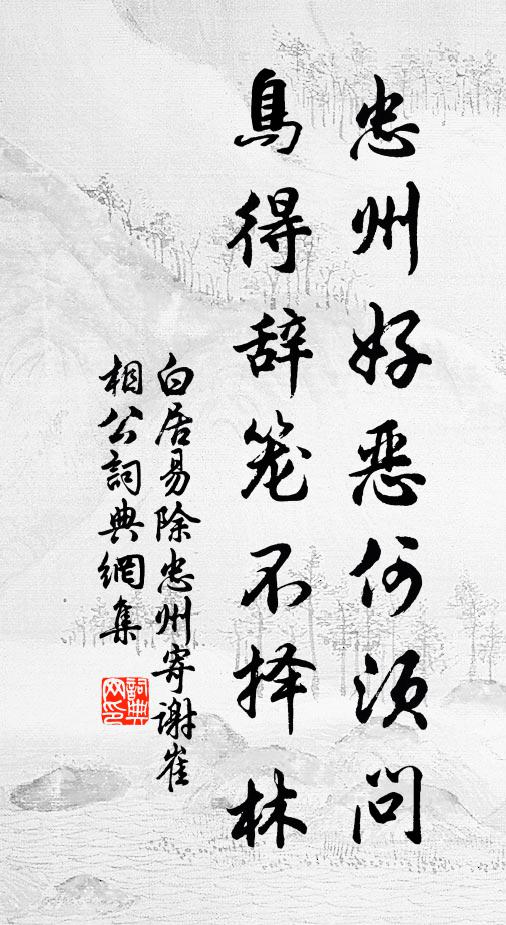 忠州好恶何须问
鳥得辞笼不择林
白居易除忠州寄谢崔
相公詞典網集
詞典
网印